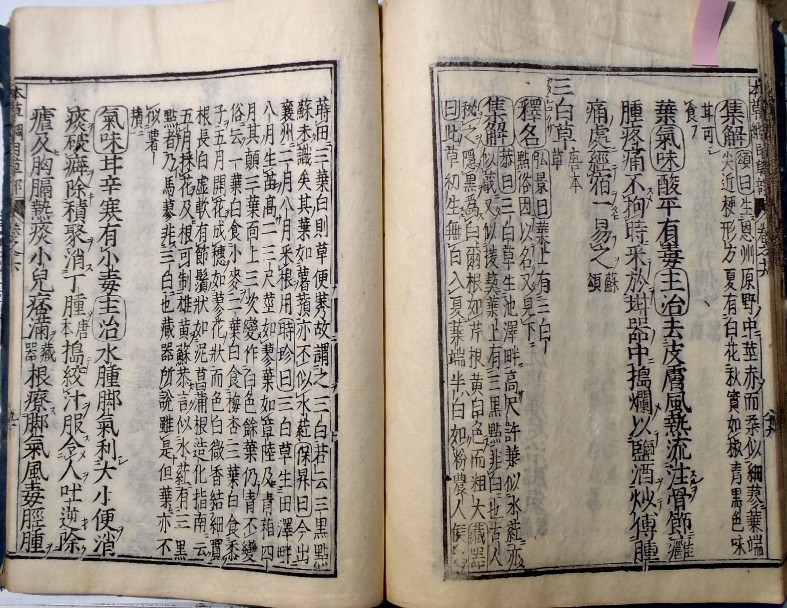 本草綱目草部 卷之十六
集解 頌曰生恩州原野中莖赤而柔似細蓼葉端
尖近梗形方夏有白花秋實如椒青黑色味
苷可
食
葉氣味酸平有毒主治去皮膚風熱流注骨節癰
腫疼痛不拘時采放坩器中搗爛以鹽酒炒傅腫
痛處經宿一易之 蘇頌
三白草 唐本草
釋名 弘景曰葉上有三白
點俗因以名又見下
集解 恭曰三白草生池澤畔高尺許葉似水葒亦
似蕺又似菝葜葉上有三黑點非白也古人
秘之隱黑為白爾根如芹根黃白色而粗大藏器
曰此草初生無白入夏葉端半白如粉農人候
蒔田三葉白則草便秀故謂之三白若云三黑點
蘇未識矣其葉如薯蕷亦不似水葒保昇曰今出
襄州二月八月釆根用時珍曰三白草生田澤畔
八月生苗高二三尺莖如蓼葉如章陸及青葙四
月其顛三葉面上三次變作白色餘葉仍青不變
俗云一葉白食小麥二葉白食梅杏三葉白食黍
子五月開花成穗如蓼花狀而色白微香結細實
根長白虛軟有節鬚狀如泥菖蒲根造化指南云
五月採花及根可制雄黃蘇恭言似水葒有三黑
點者乃馬蓼非三白也藏器所說雖是但葉亦不
似薯
蕷
氣味苷辛寒有小毒主治水腫腳氣利大小便消
痰破癖除積聚消丁腫 唐本 搗絞汁服令人吐逆除
瘧及胸膈熱痰小兒痞滿 藏器 根療腳氣風毒脛腫
本草綱目草部 卷之十六